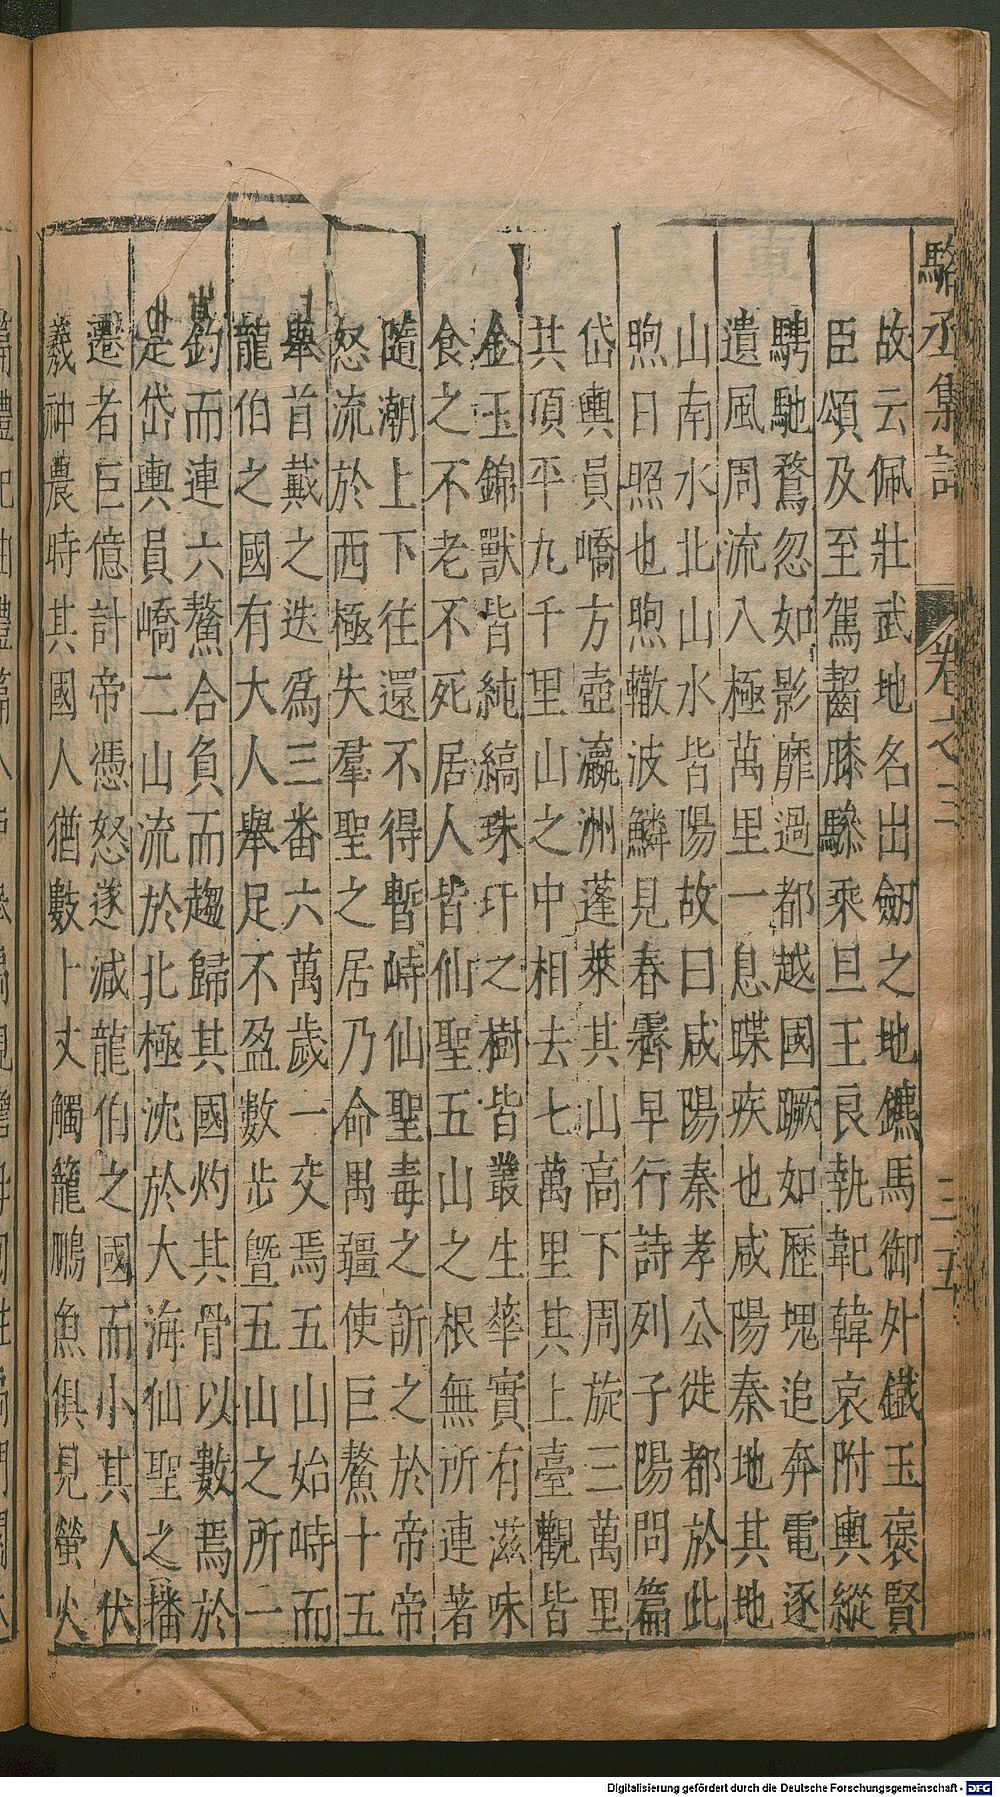 駱丞集註 卷之三 三五
故云佩壯武地名出劒之地鑣馬御外鐵玉褒賢
臣頌及至駕齧膝驂乘旦王良執靶韓哀附輿縱
騁馳鶩忽如影靡過都越國蹶如歷塊追奔電逐
遺風周流八極萬里一息蹀疾也咸陽秦地其地
山南水北山水皆陽故曰咸陽秦孝公徙都於此
煦日照也煦轍波鱗見春霽早行詩列子陽問篇
岱輿員嶠方壺瀛洲蓬萊其山高下周旋三萬里
其頂平九千里山之中相去七萬里其上臺觀皆
金玉錦獸皆純縞珠玕之樹皆叢生華實有滋味
食之不老不死居人皆仙聖五山之根無所連著
隨潮上下往還不得暫峙仙聖毒之訢之於帝帝
怒流於西極失羣聖之居乃命禺疆使巨鰲十五
舉首戴之迭爲三番六萬歲一交焉五山始峙而
龍伯之國有大人舉足不盈數步曁五山之所一
釣而連六鰲合負而趨歸其國灼其骨以數焉於
是岱輿員嶠二山流於北極沈於大海仙聖之播
遷者巨億計帝憑怒遂減龍伯之國而小其人伏
羲神農時其國人猶數十丈觸籠鵩魚俱見螢火
Digitalisierung gefördert durch die Deutsche Forschungsgemeinschaft - DFG